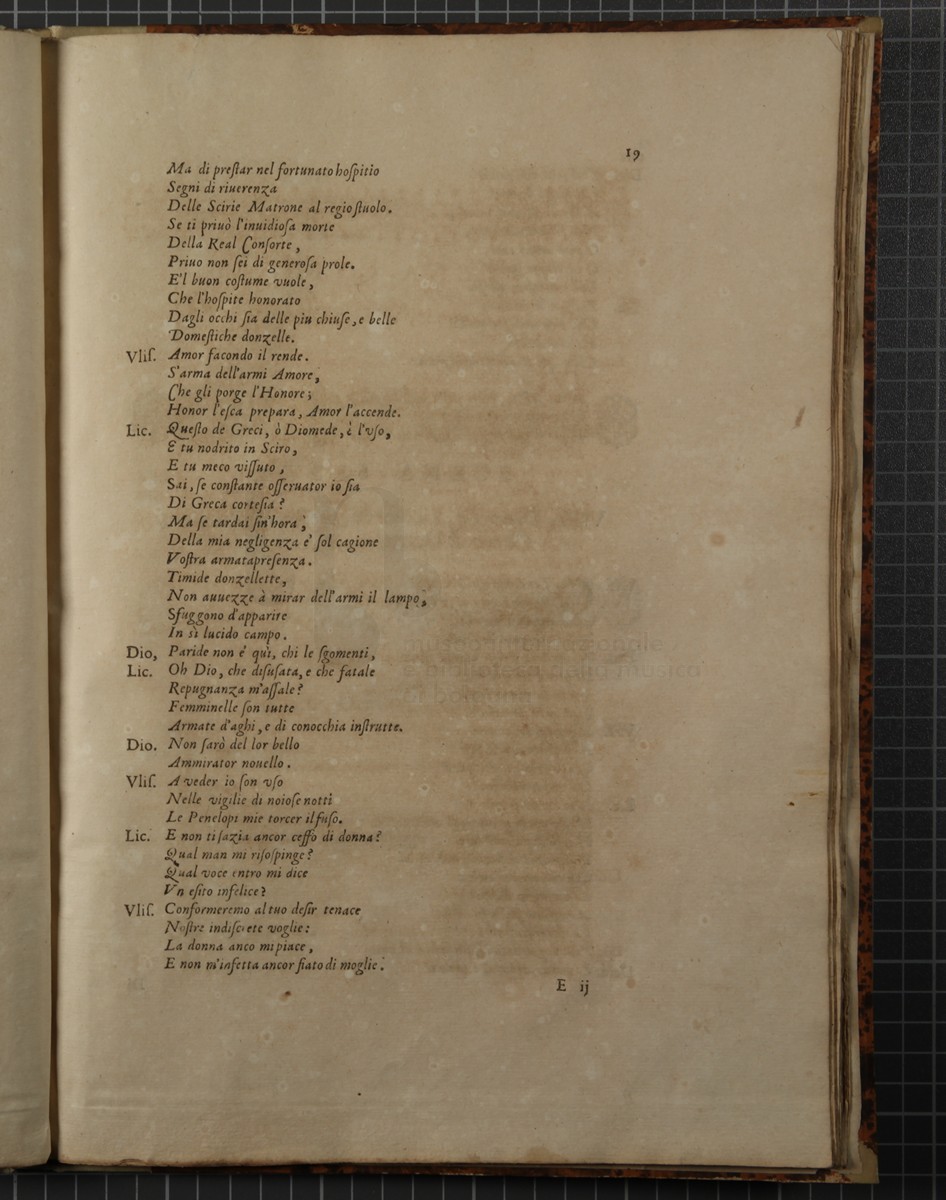 19
Ma di preſtar nel fortunato hoſpitio
Segni di riuerenza
Delle Scirie Matrone al regio ſtuolo.
Se ti priuò l'inuidioſa morte
Della Real Conſorte,
Priuo non ſei di generoſa prole.
E'l buon coſtume vuole,
Che l'hoſpite honorato
Dagli occhi ſia delle piu chiuſe, e belle
Domeſtiche donzelle.
Vliſ. Amor facondo il rende.
S'arma dell'armi Amore,
Che gli porge l'Honore;
Honor l'eſca prepara, Amor l'accende.
Lic. Queſto de Greci, ò Diomede, è l'vſo,
E tu nodrito in Sciro,
E tu meco viſſuto,
Sai, ſe conſtante oſſeruator io ſia
Di Greca corteſia?
Ma ſe tardai ſin'hora,
Della mia negligenza e' ſol cagione
Voſtra armata preſenza.
Timide donzellette,
Non auuezze à mirar dell'armi il lampo,
Sfuggono d'apparire
In sì lucido campo.
Dio, Paride non é quì, chi le ſgomenti,
Lic. Oh Dio, che diſuſata, e che fatale
Repugnanza m'aſſale?
Femminelle ſon tutte
Armate d'aghi, e di conocchia inſtrutte.
Dio. Non ſarò del lor bello
Ammirator nouello.
Vliſ. A veder io ſon vſo
Nelle vigilie di noioſe notti
Le Penelopi mie torcer il fuſo.
Lic. E non ti ſazia ancor ceffo di donna?
Qual man mi riſoſpinge?
Qual voce entro mi dice
Vn eſito infelice?
Vliſ. Conformeremo al tuo deſir tenace
Noſtre indiſcrete voglie:
La donna anco mi piace,
E non m'infetta ancor fiato di moglie.
E ij